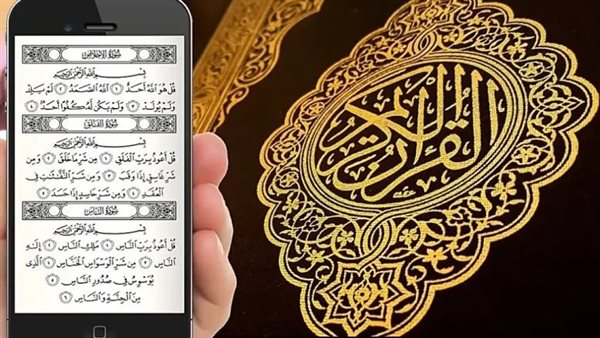 سُورَةُ الإِخْلَاصِ
بِسْمِ اللَّهِ الرَّحْمَٰنِ الرَّحِيمِ
قُلْ هُوَ اللَّهُ أَحَدٌ ١ اللَّهُ الصَّمَدُ ٢ لَمْ يَلِدْ
وَلَمْ يُولَدْ ٣ وَلَمْ يَكُن لَّهُ كُفُوًا أَحَدٌ ٤
سُورَةُ الْفَلَقِ
بِسْمِ اللَّهِ الرَّحْمَٰنِ الرَّحِيمِ
قُلْ أَعُوذُ بِرَبِّ الْفَلَقِ ١ مِن شَرِّ مَا خَلَقَ ٢ وَمِن
شَرِّ غَاسِقٍ إِذَا وَقَبَ ٣ وَمِن شَرِّ النَّفَّٰثَٰتِ فِي
الْعُقَدِ ٤ وَمِن شَرِّ حَاسِدٍ إِذَا حَسَدَ ٥
سُورَةُ النَّاسِ
بِسْمِ اللَّهِ الرَّحْمَٰنِ الرَّحِيمِ
قُلْ أَعُوذُ بِرَبِّ النَّاسِ ١ مَلِكِ النَّاسِ ٢ إِلَٰهِ
النَّاسِ ٣ مِن شَرِّ الْوَسْوَاسِ الْخَنَّاسِ ٤ الَّذِي
يُوَسْوِسُ فِي صُدُورِ النَّاسِ ٥
مِنَ الْجِنَّةِ وَالنَّاسِ ٦
القرآن الكريم